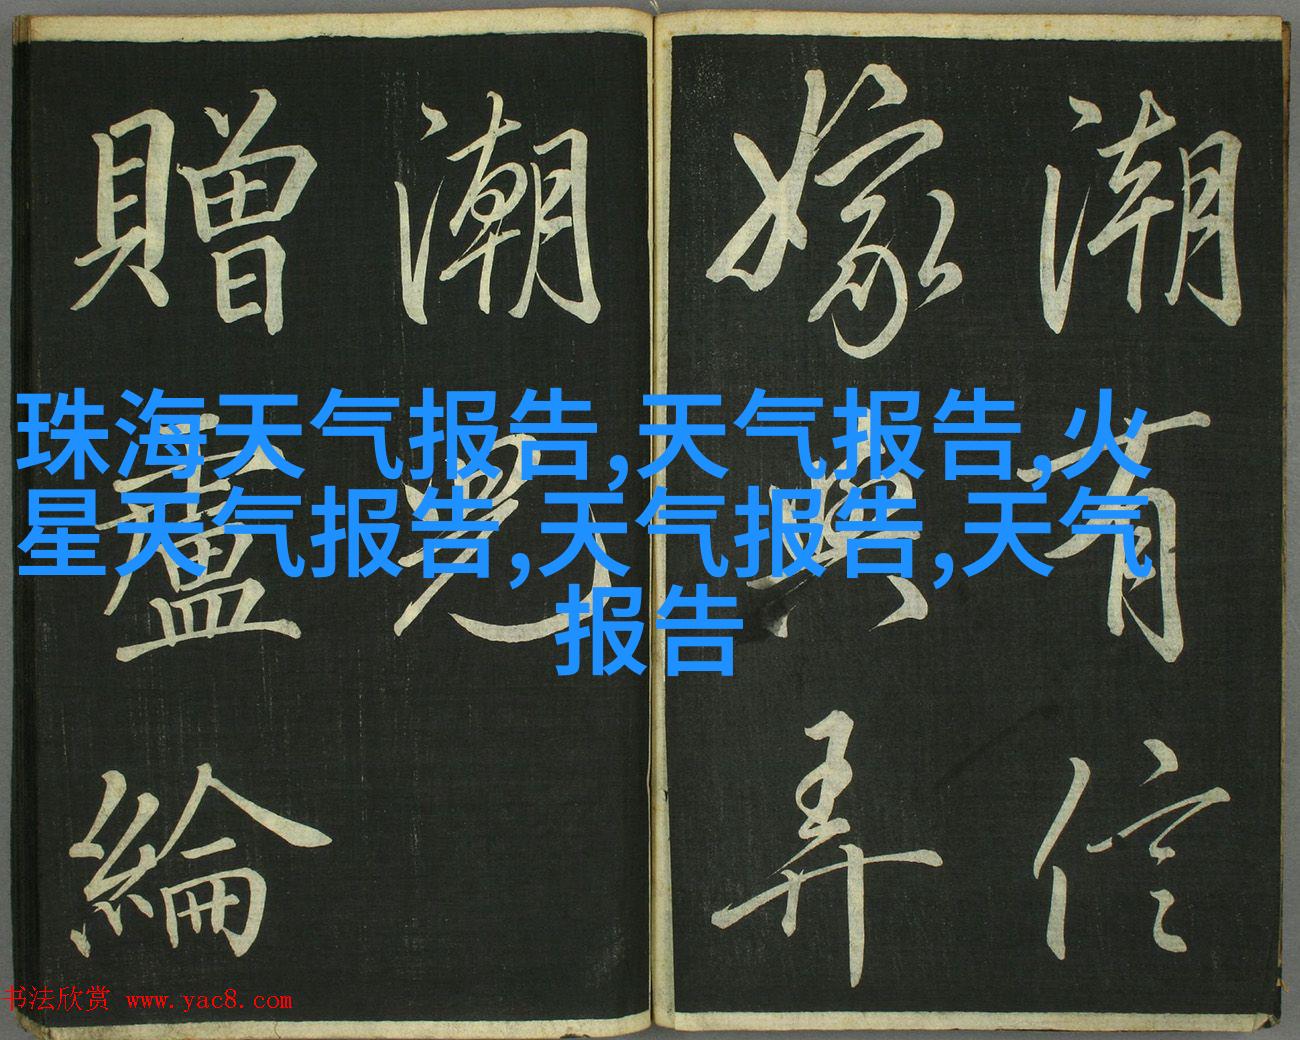 潮有信
嫁與弄
潮兒
贈盧綸
珠海天气报告,天气报告,火
星天气报告,天气报告,天气
报告
书法欣赏 www.yac8.com